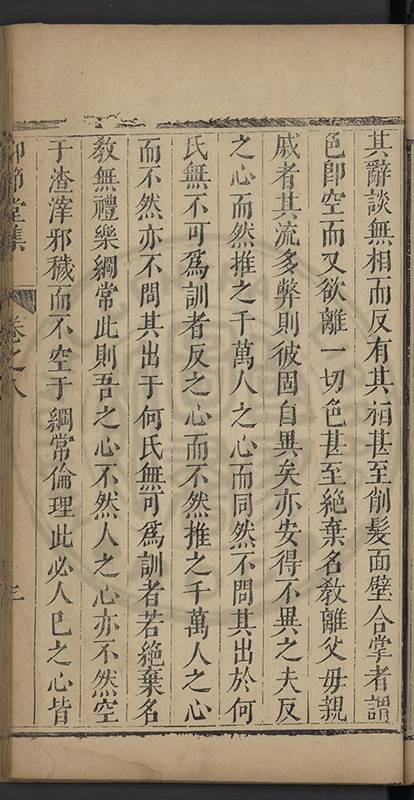 其辭談無相而反有其相甚至削髮面壁合掌者謂
色卽空而又欲離一切色甚至絶棄名敎離父毋親
戚者其流多弊則彼固自異矣亦安得不異之夫反
之心而然推之千萬人之心而同然不問其出於何
氏無不可爲訓者反之心而不然推之千萬人之心
而不然亦不問其出于何氏無可爲訓者若絶棄名
敎無禮樂綱常此則吾之心不然人之心亦不然空
于渣滓邪穢而不空于綱常倫理此必人巳之心皆
仰節堂集 卷之八 三